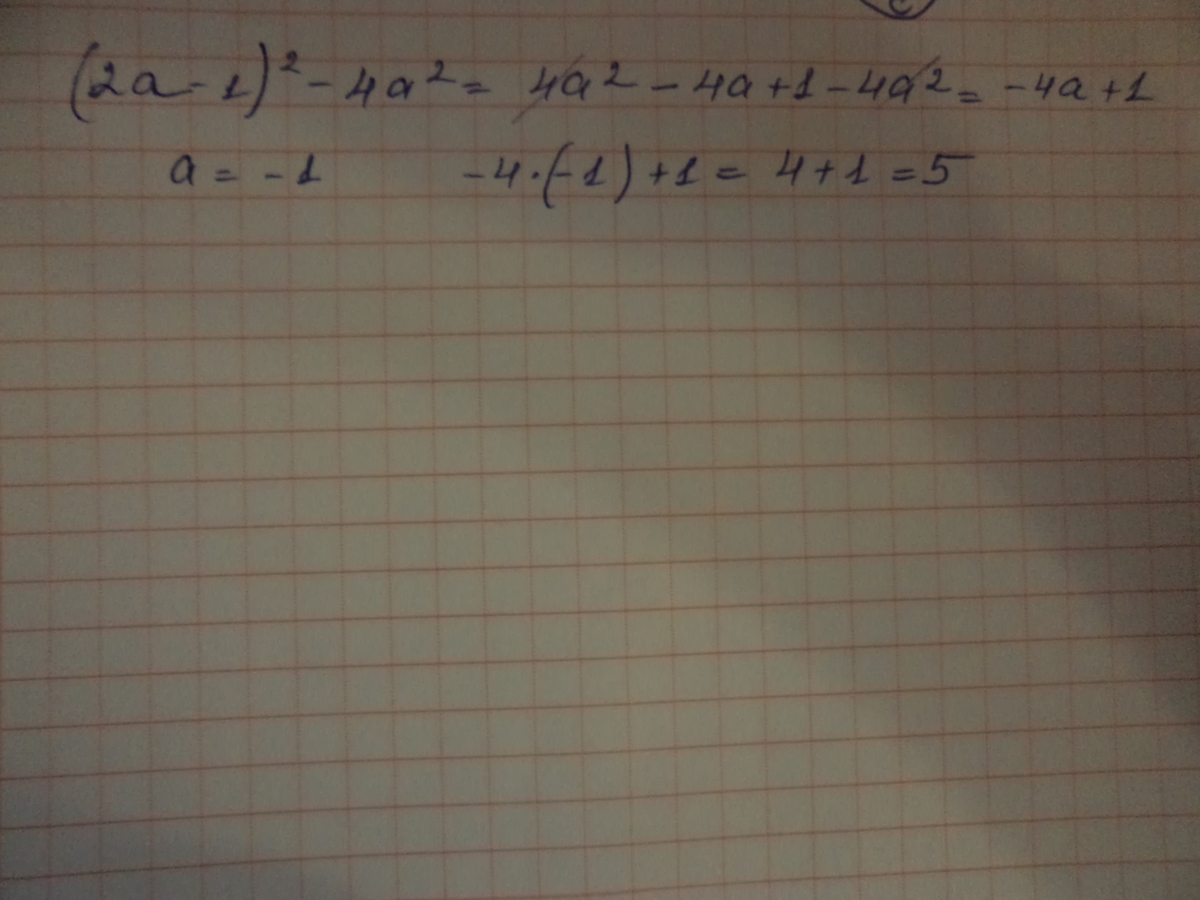 (2a-1)² - 4a² = 4a² - 4a + 1 - 4a² = -4a + 1
a = -1 -4·(-1) + 1 = 4 + 1 = 5